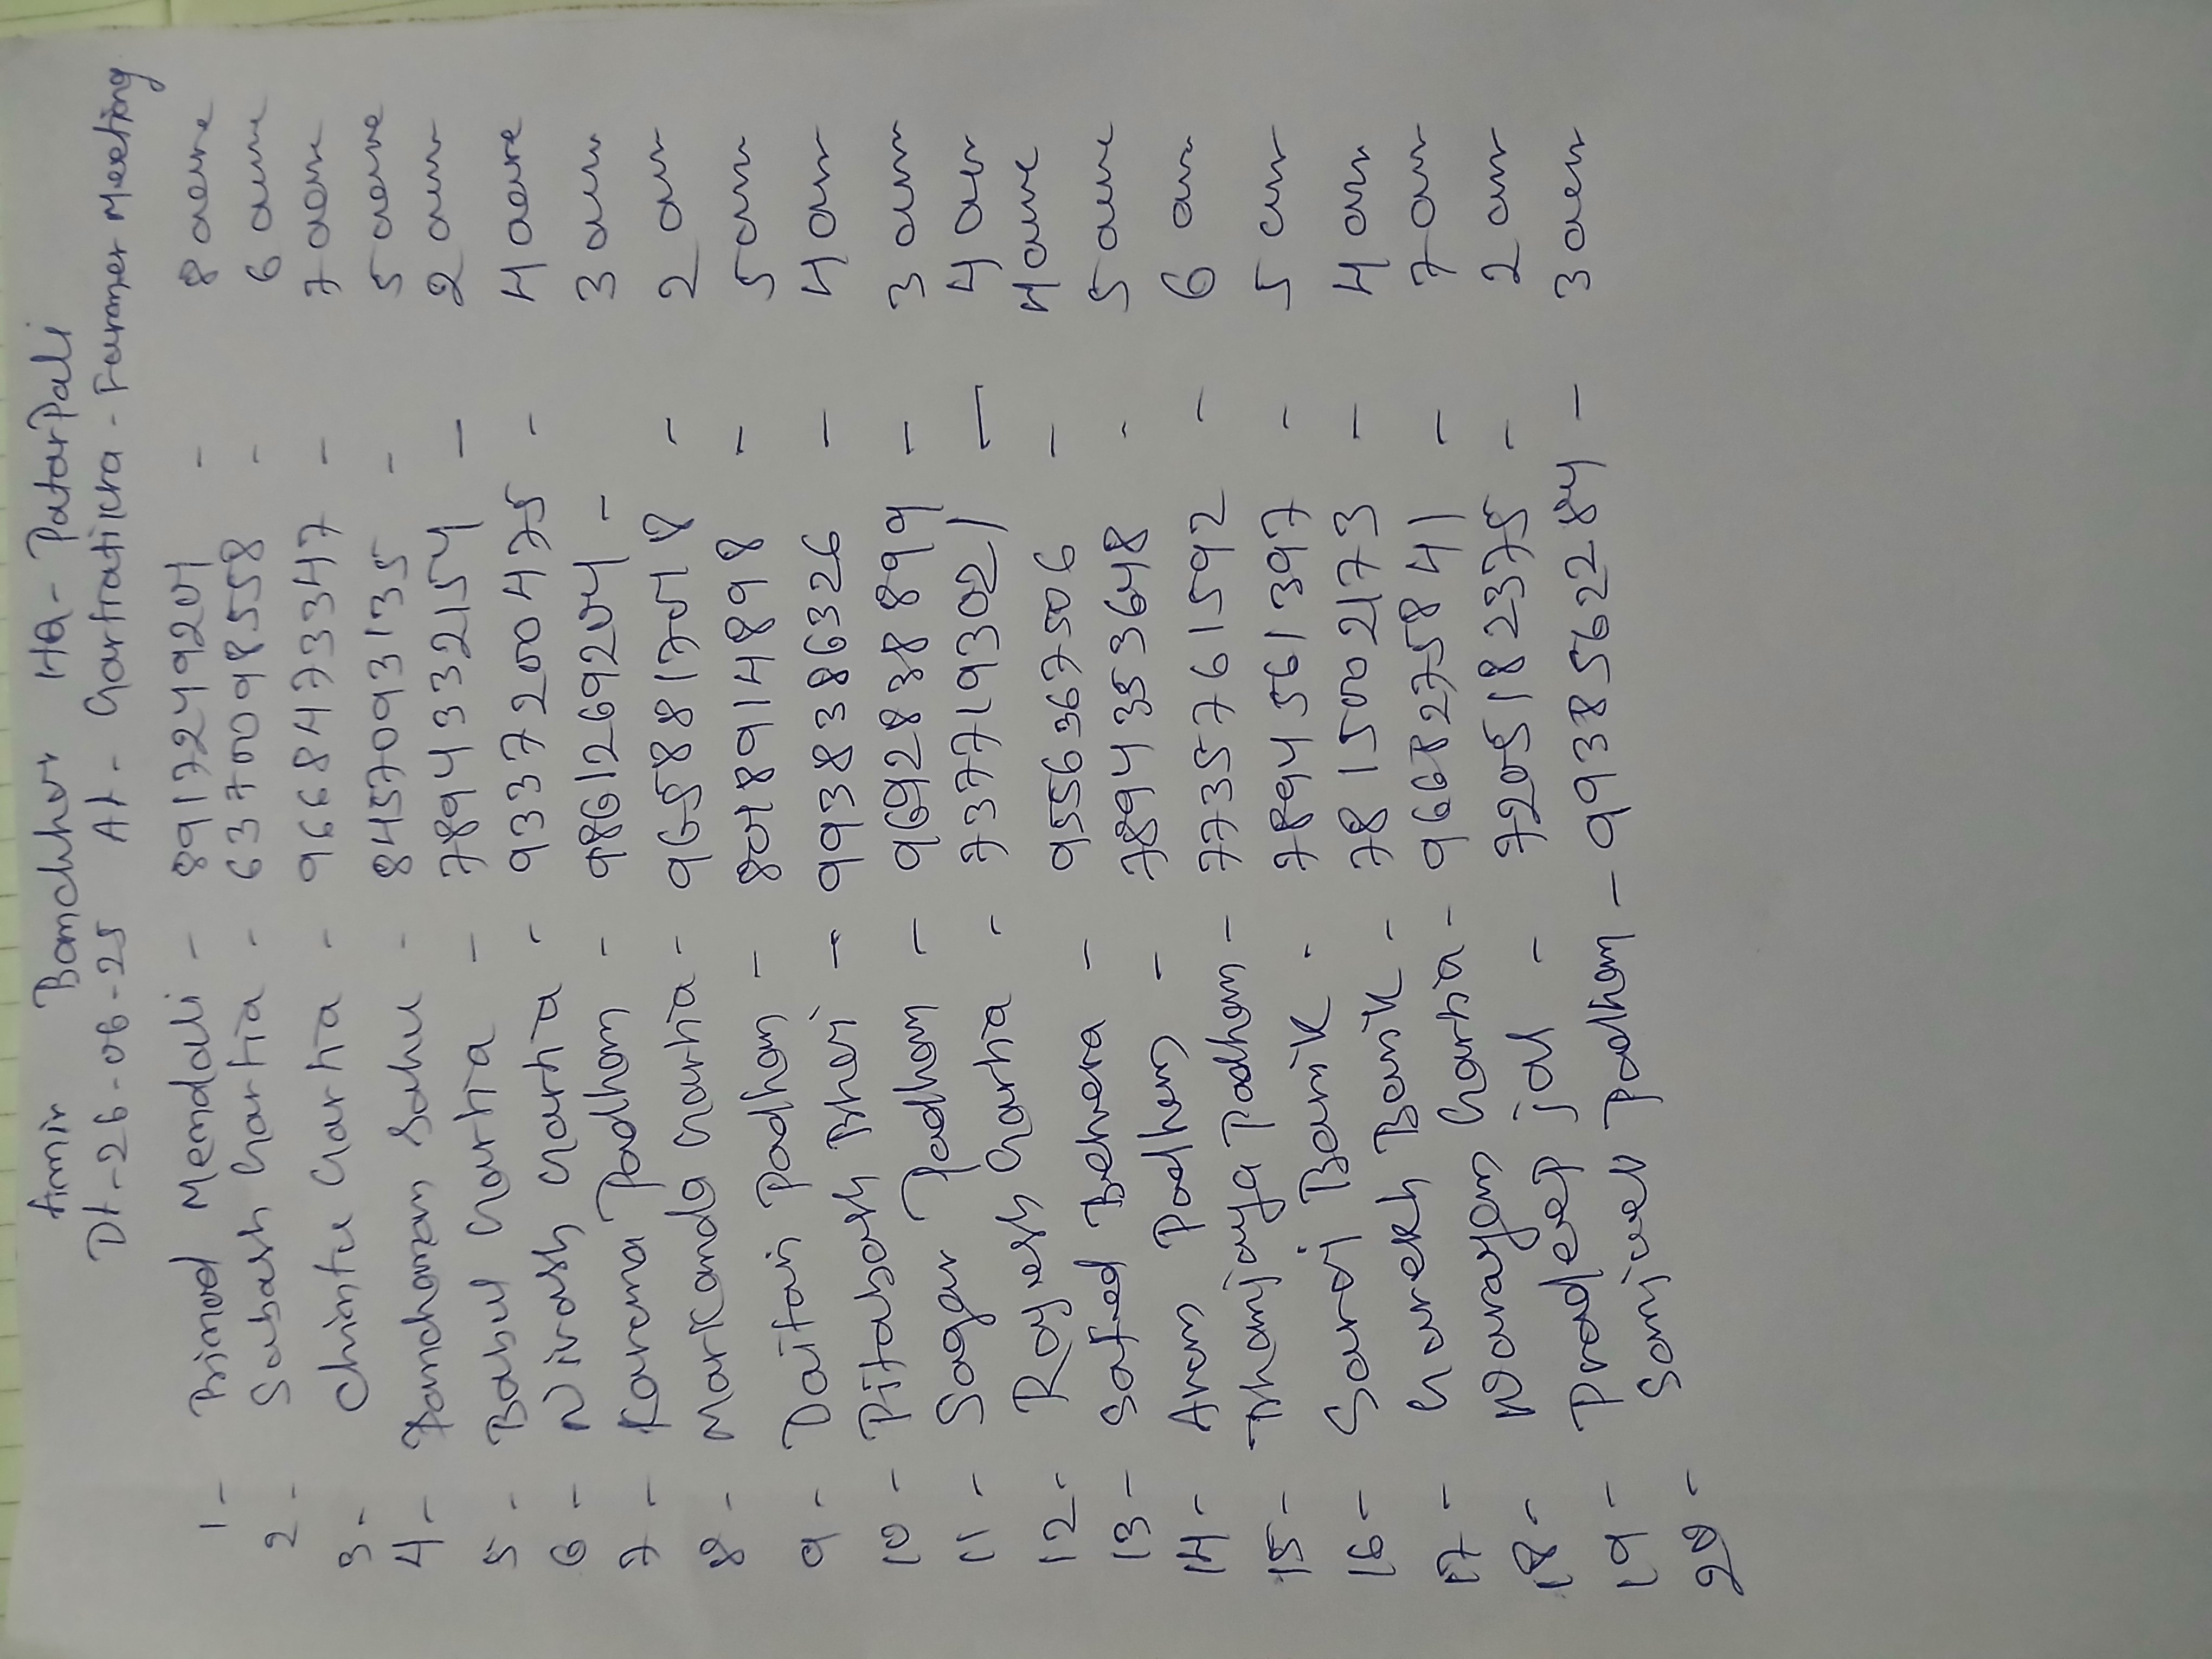 Amin Banchhor HQ - PatarPali
Dt-26-06-25 At- Gartratikra - Farmer Meeting
1- Bimod Mendali - 8917249204 - 8 acre
2- Subash Gartia - 6370098558 - 6 acre
3- Chintu Gartia - 9668473347 - 7 acre
4- Panchanan Sahu - 8457093135 - 5 acre
5- Babul Gartia - 7894332154 - 2 acre
6- Nirash Gartia - 9337200475 - 4 acre
7- Karuna Padhan - 9861269204 - 3 acre
8- Markanda Gartia - 9658817048 - 2 acre
9- Daitari Padhan - 8048914898 - 5 acre
10- Pitabash Bhoi - 9938386326 - 4 acre
11- Sagar Padhan - 9692838899 - 3 acre
12- Rajesh Gartia - 7377193021 - 4 acre
13- Safed Behera - 9556367506 - 4 acre
14- Aren Padhan - 7894353648 - 5 acre
15- Dhanjaya Padhan - 7735761592 - 6 acre
16- Saroj Barik - 7894561397 - 5 acre
17- Suresh Barik - 7815002173 - 4 acre
18- Narayan Gartia - 9668275841 - 7 acre
19- Pradeep jal - 7205182375 - 2 acre
20- Sanjeev Padhan - 9938562284 - 3 acre